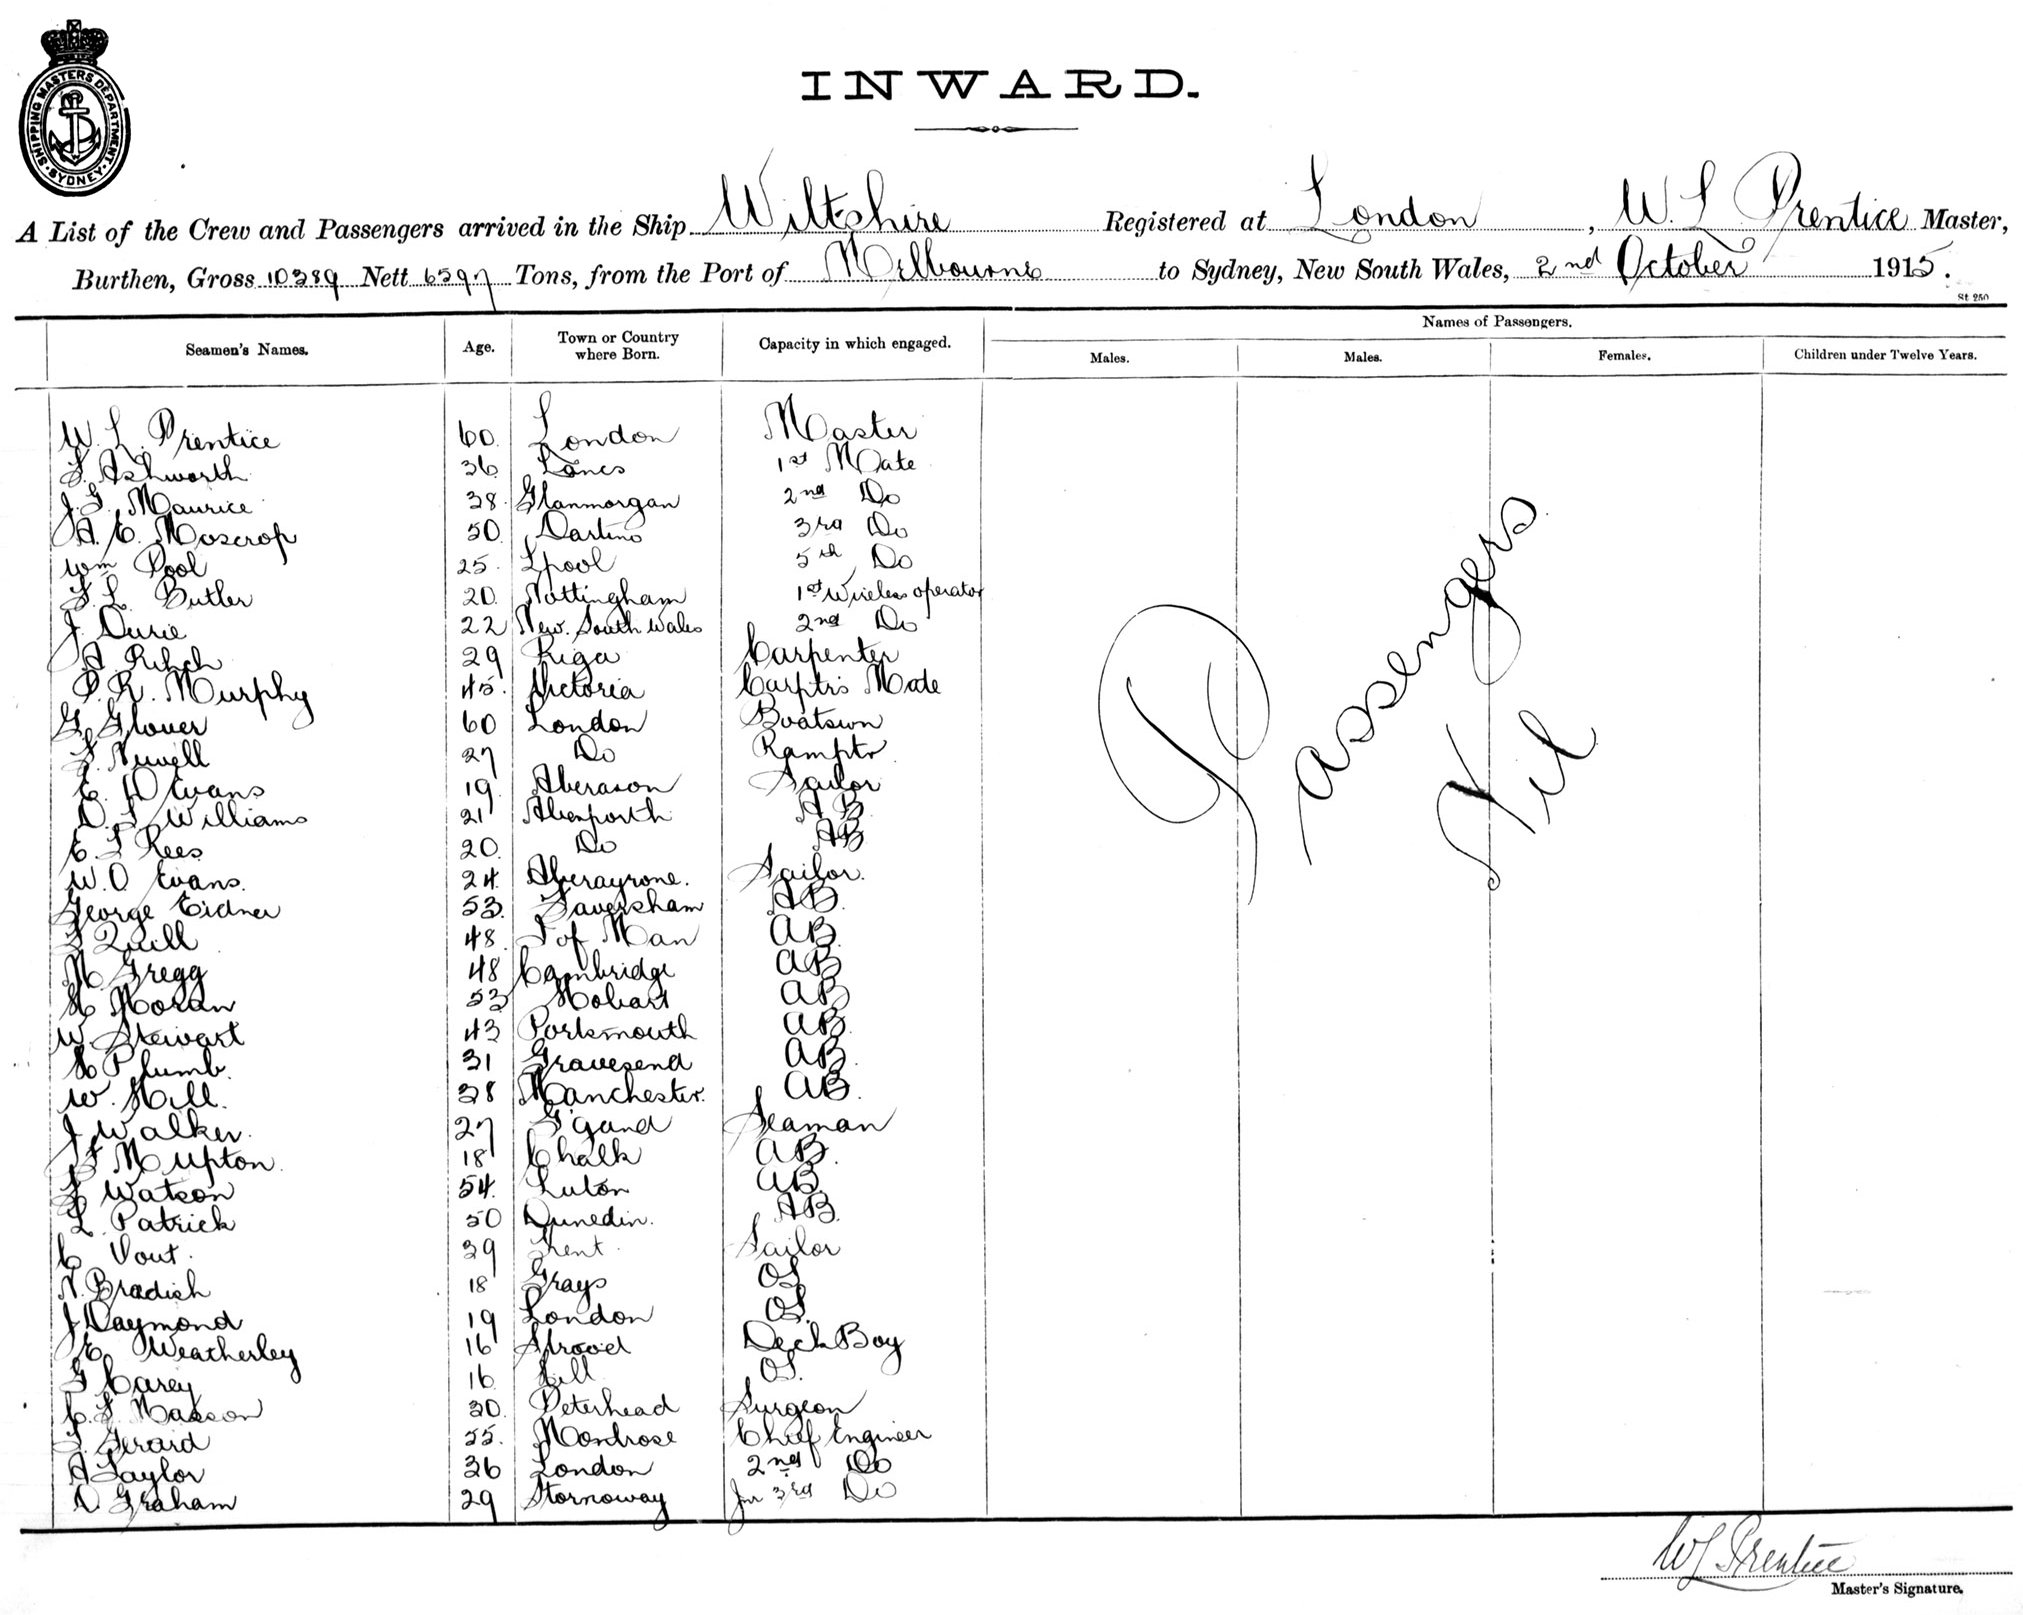 SHIPPING MASTERS DEPARTMENT
SYDNEY
INWARD.
A List of the Crew and Passengers arrived in the Ship Wiltshire Registered at London, W. L Prentice Master,
Burthen, Gross 10389 Nett 6597 Tons, from the Port of Melbourne to Sydney, New South Wales, 2nd October 1915.
St 250
Names of Passengers.
Seamen's Names. Age. Town or Country where Born. Capacity in which engaged. Males. Males. Females. Children under Twelve Years.
W. L. Prentice 60 London Master
Ashworth 36 Lancs 1st Mate
Maurice 38 Glanmorgan 2nd Do
Moscrop 50 3rd Do
Wm Pool 25 Lpool 5th Do
Butler 20 Nottingham 1st Wireless operator
J. Durie 22 New. South Wales 2nd Do
29 Riga Carpenter
P. R. Murphy 45 Victoria Carptr's Mate
G. Glover 60 London Boatswn
Newell 27 Do Lamptr
E. D Evans 19 Aberaron Sailor
D. Williams 21 Abenporth AB
Rees 20 Do AB
W. O Evans. 24 Aberayrone. Sailor.
George Eidner 53 Faversham AB
Quill 48 I of Man AB
Gregg 48 Cambridge AB
Moran 53 Hobart AB
W. Stewart 43 Portsmouth AB
H Plumb. 31 Gravesend AB
W. Hill. 38 Manchester. AB
J Walker. 27 Seaman
Upton. 18 Chalk AB
Watson 54 Luton AB
L Patrick 50 Dunedin. AB
C Vout. 39 Sailor
N. Bradish 18 Grays OS
J Daymond 19 London OS
E. Weatherley 16 Deck Boy
G Carey 16 OS.
Masson 30 Peterhead Surgeon
Gerard 55. Montrose Chief Engineer
A Taylor 36 London 2nd Do
D Graham 29 Stornoway Jnr 3rd Do
Passengers
Nil
WL Prentice
Master's Signature.